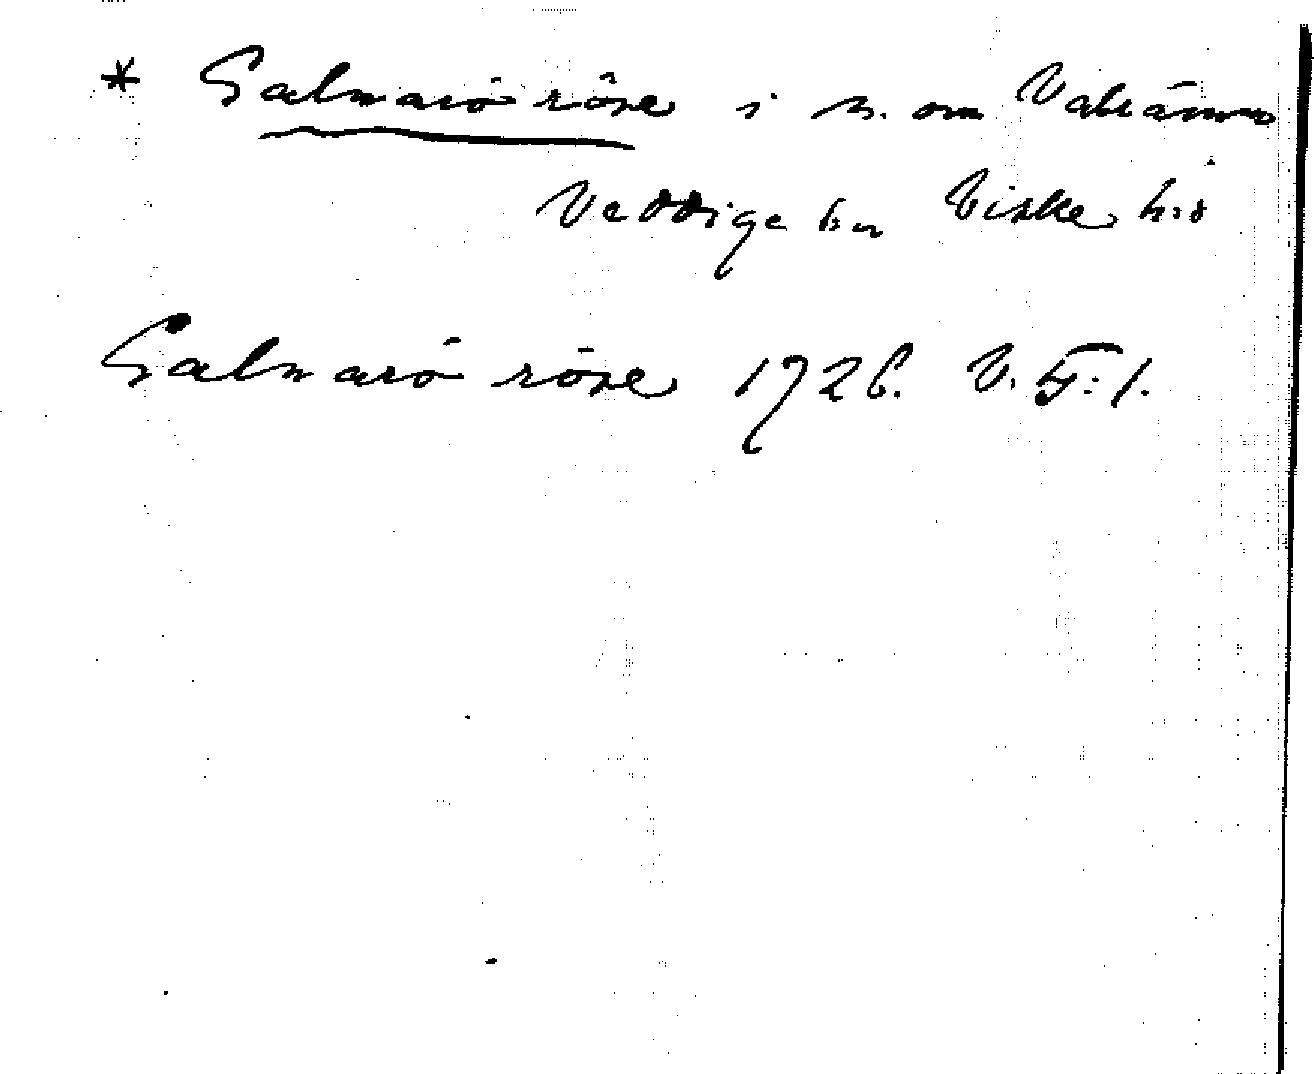 * Galnarö röse i n. om Valränna
Veddige sn Viske hd
Galnarö röse 1726. V. 5:1.